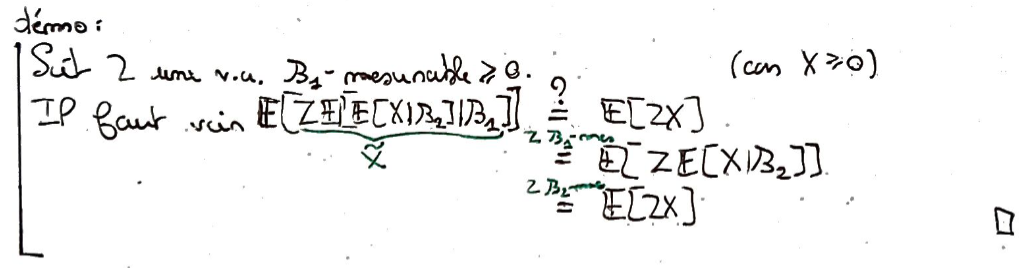 démo :
Soit Z une v.a. B₁-mesurable ≥ 0. (cas X ≥ 0)
Il faut voir E[Z E[E[X|B₂]|B₁]] ?= E[ZX]
X̃ Z B₁-mes = E[Z E[X|B₂]]
Z B₂-mes = E[ZX]
□